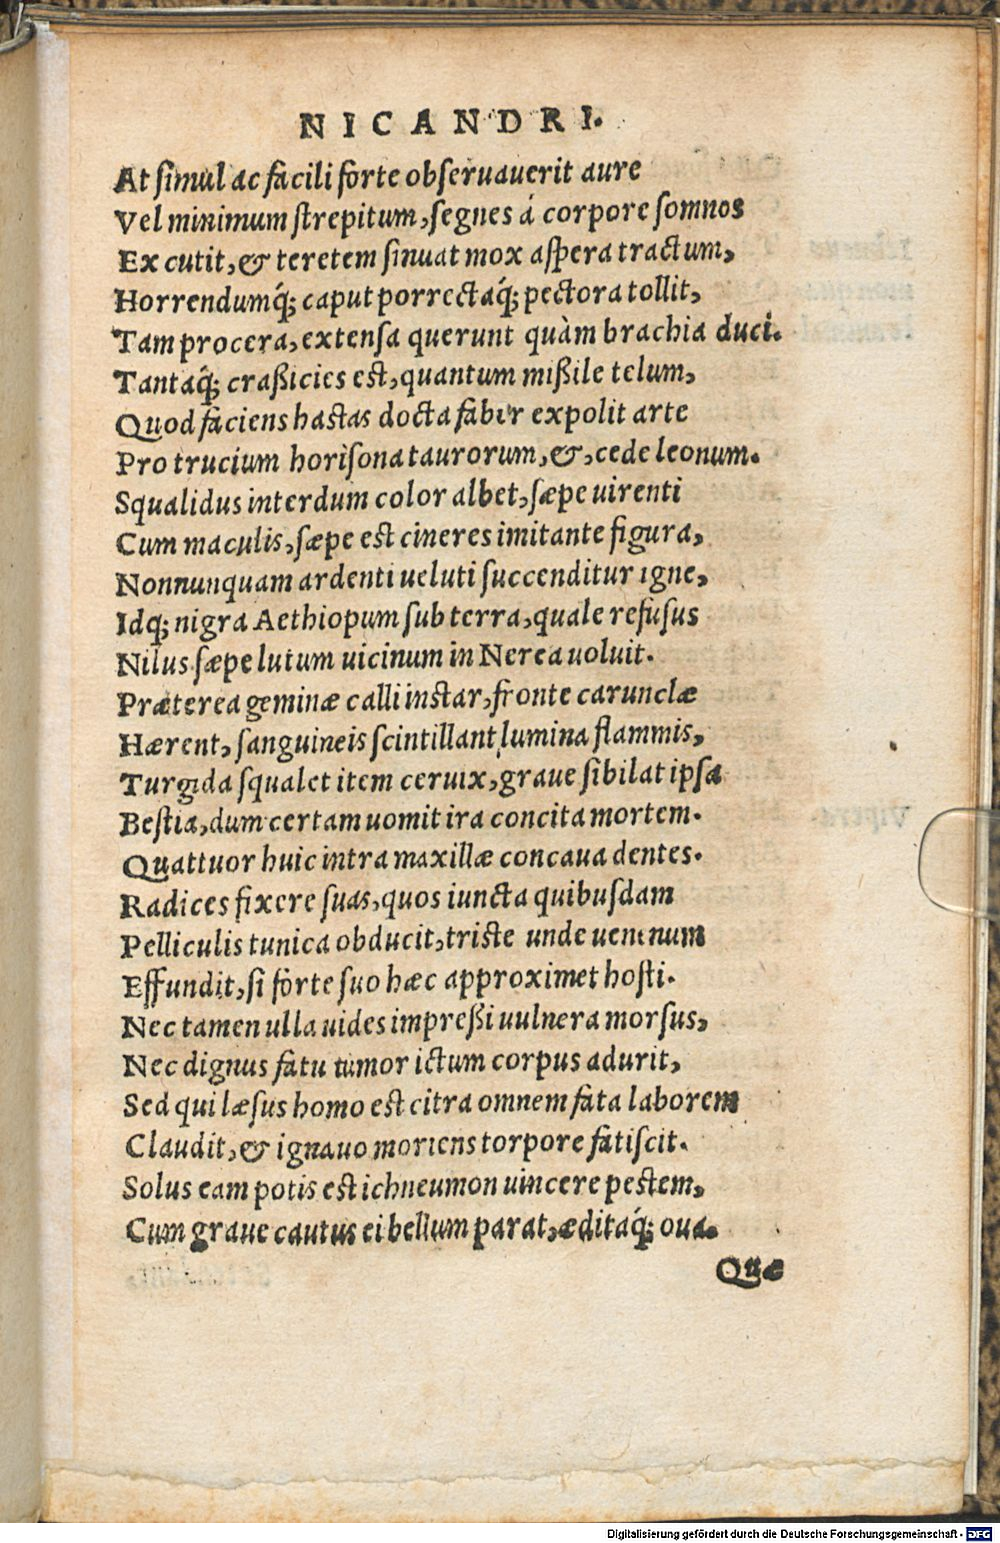 NICANDRI.
At simul ac facili forte obseruauerit aure
Vel minimum strepitum, segnes á corpore somnos
Excutit, & teretem sinuat mox aspera tractum,
Horrendumq́; caput porrectaq́; pectora tollit,
Tam procera, extensa querunt quàm brachia duci.
Tantaq́; craßicies est, quantum mißile telum,
Quod faciens hastas docta faber expolit arte
Pro trucium horisona taurorum, &, cede leonum.
Squalidus interdum color albet, sæpe uirenti
Cum maculis, sæpe est cineres imitante figura,
Nonnunquam ardenti ueluti succenditur igne,
Idq; nigra Aethiopum sub terra, quale refusus
Nilus sæpe lutum uicinum in Nerea uoluit.
Præterea geminæ calli instar, fronte carunclæ
Hærent, sanguineis scintillant lumina flammis,
Turgida squalet item ceruix, graue sibilat ipsa
Bestia, dum certam uomit ira concita mortem.
Quattuor huic intra maxillæ concaua dentes.
Radices fixere suas, quos iuncta quibusdam
Pelliculis tunica obducit, triste unde uenenum
Effundit, si forte suo hæc approximet hosti.
Nec tamen ulla uides impreßi uulnera morsus,
Nec dignus fatu tumor ictum corpus adurit,
Sed qui læsus homo est citra omnem fata laborem
Claudit, & ignauo moriens torpore fatiscit.
Solus eam potis est ichneumon uincere pestem,
Cum graue cautus ei bellum parat, æditaq́; oua.
Quæ
Digitalisierung gefördert durch die Deutsche Forschungsgemeinschaft - DFG